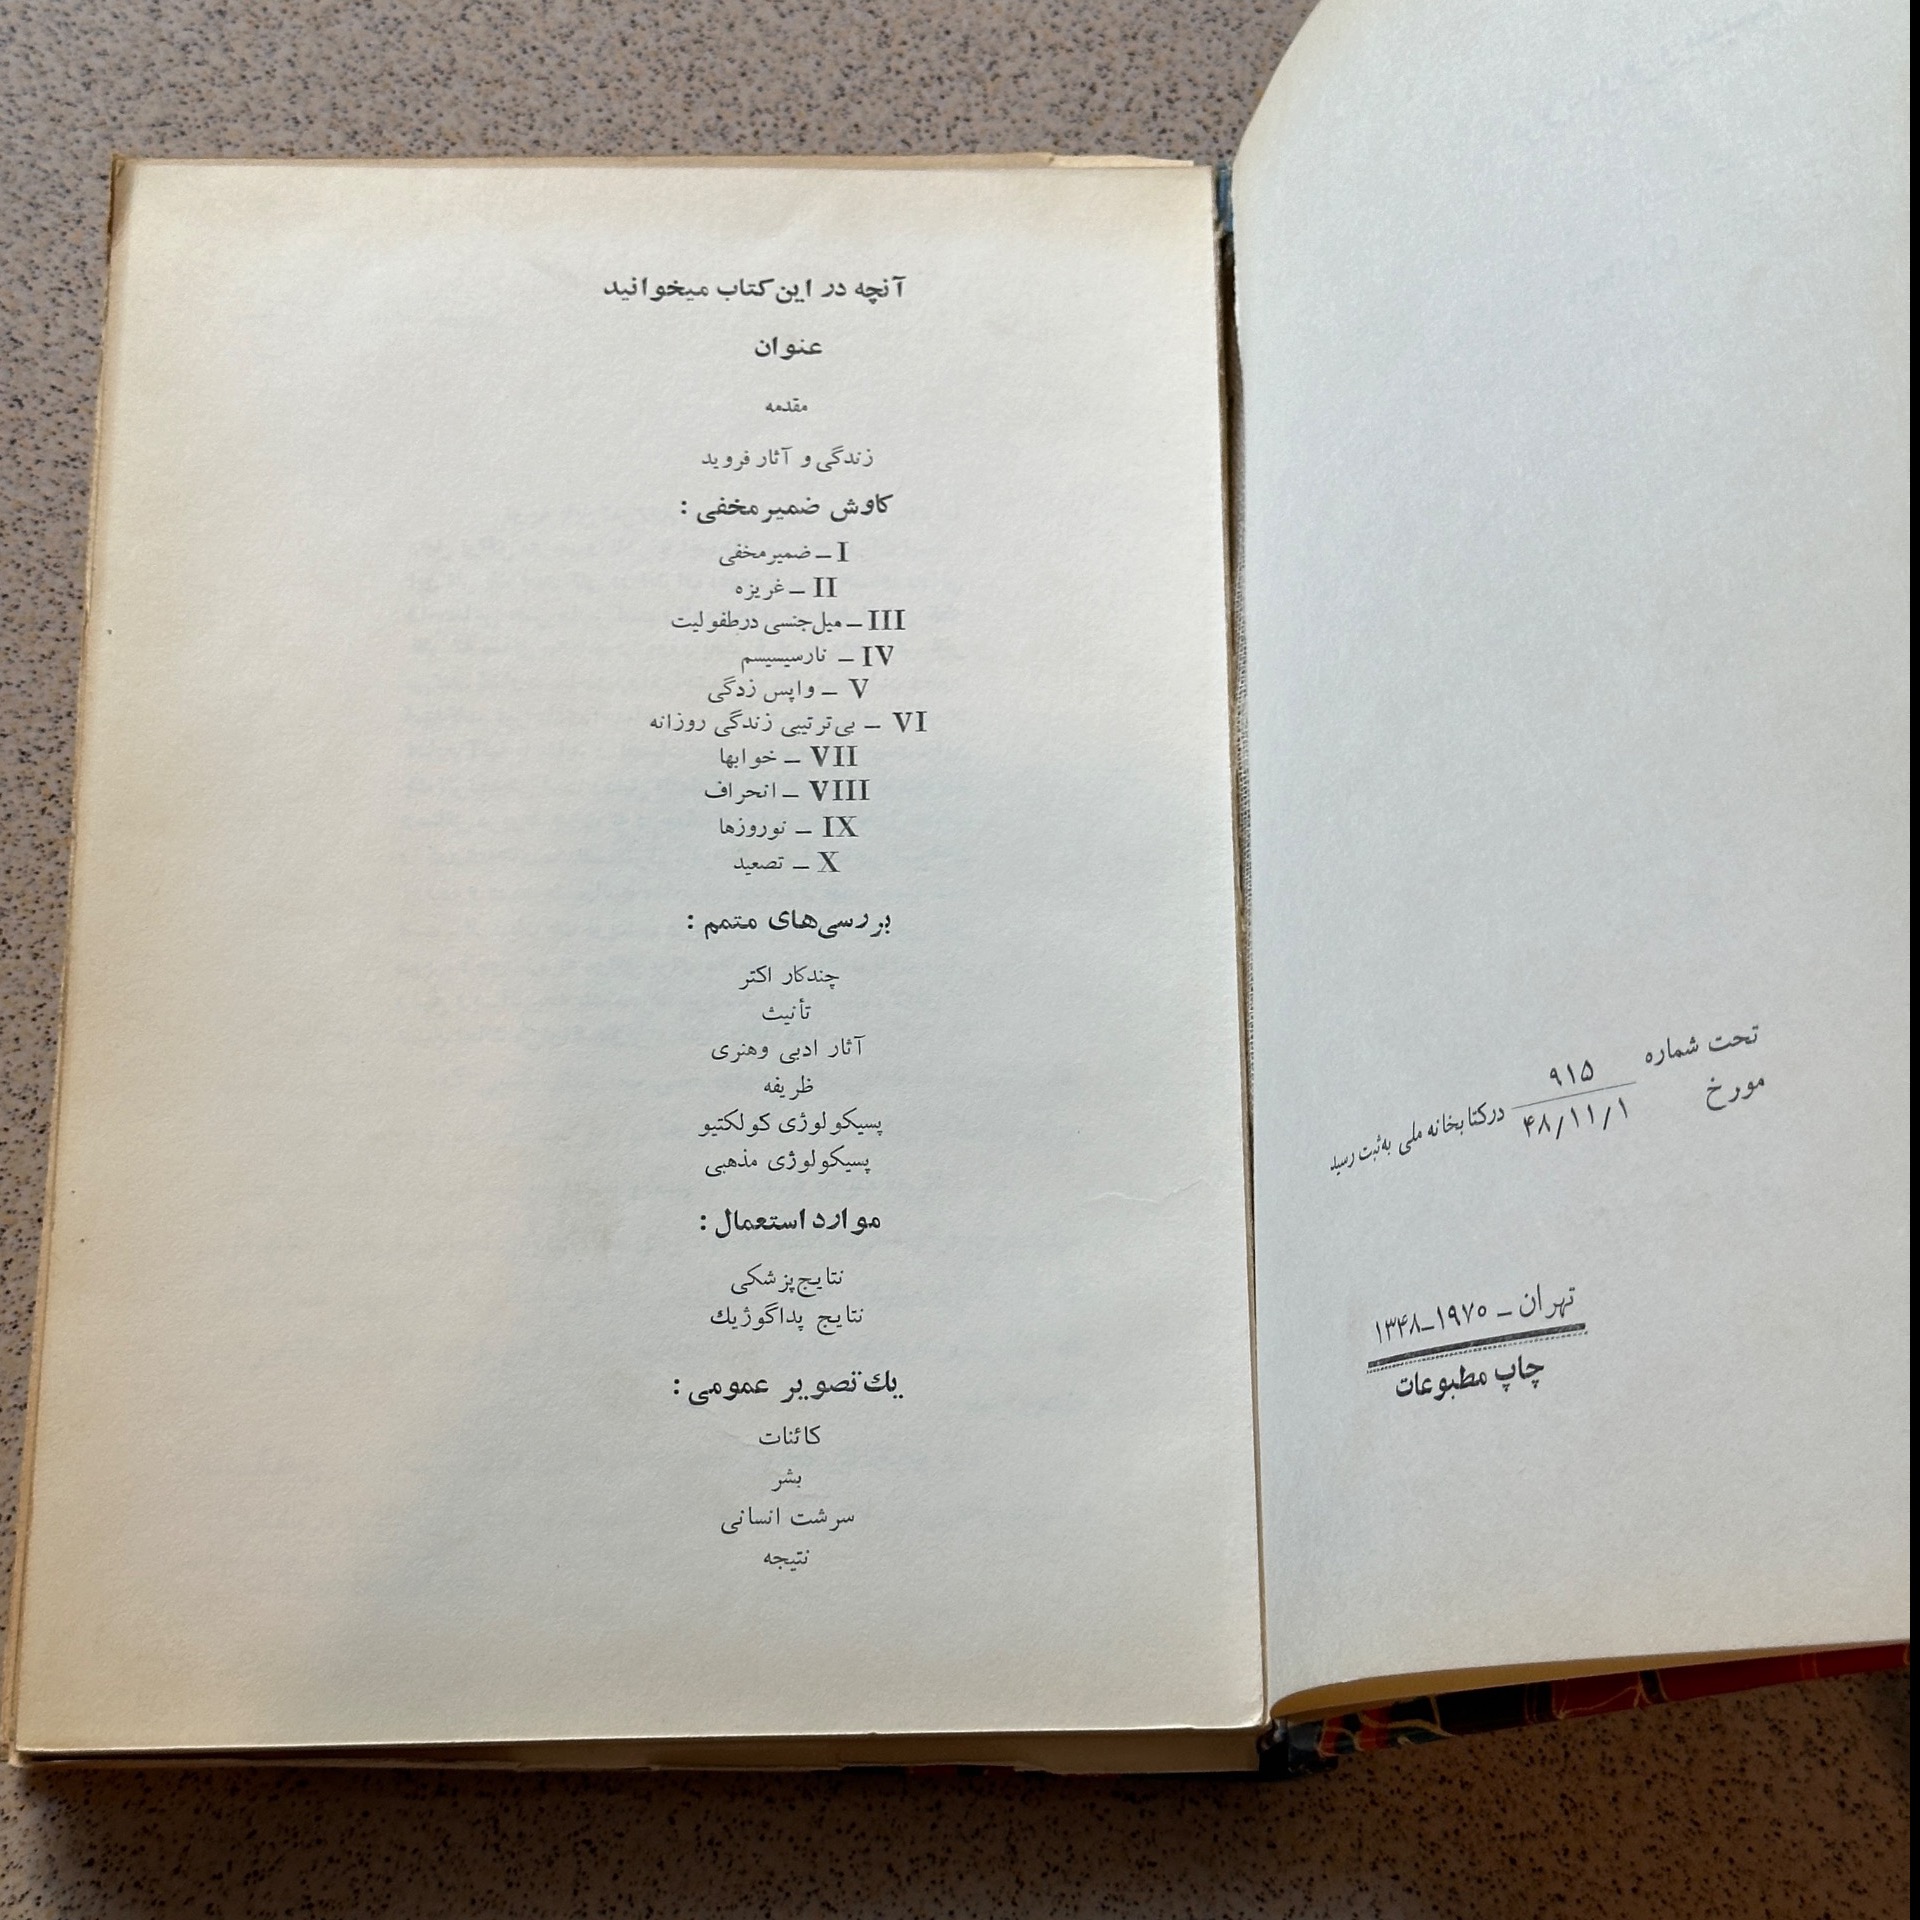 تحت شماره ۹۱۵
مورخ ۴۸/۱۱/۱ در کتابخانه ملی به ثبت رسید
تهران ـ ۱۹۷۰ـ۱۳۴۸
چاپ مطبوعات
آنچه در این کتاب میخوانید
عنوان
مقدمه
زندگی و آثار فروید
کاوش ضمیر مخفی :
I ـ ضمیر مخفی
II ـ غریزه
III ـ میل جنسی در طفولیت
IV ـ نارسیسیسم
V ـ واپس زدگی
VI ـ بی‌ترتیبی زندگی روزانه
VII ـ خوابها
VIII ـ انحراف
IX ـ نوروزها
X ـ تصعید
بررسی‌های متمم :
چند کاراکتر
تأنیث
آثار ادبی و هنری
ظریفه
پسیکولوژی کولکتیو
پسیکولوژی مذهبی
موارد استعمال :
نتایج پزشکی
نتایج پداگوژیك
یك تصویر عمومی :
کائنات
بشر
سرشت انسانی
نتیجه